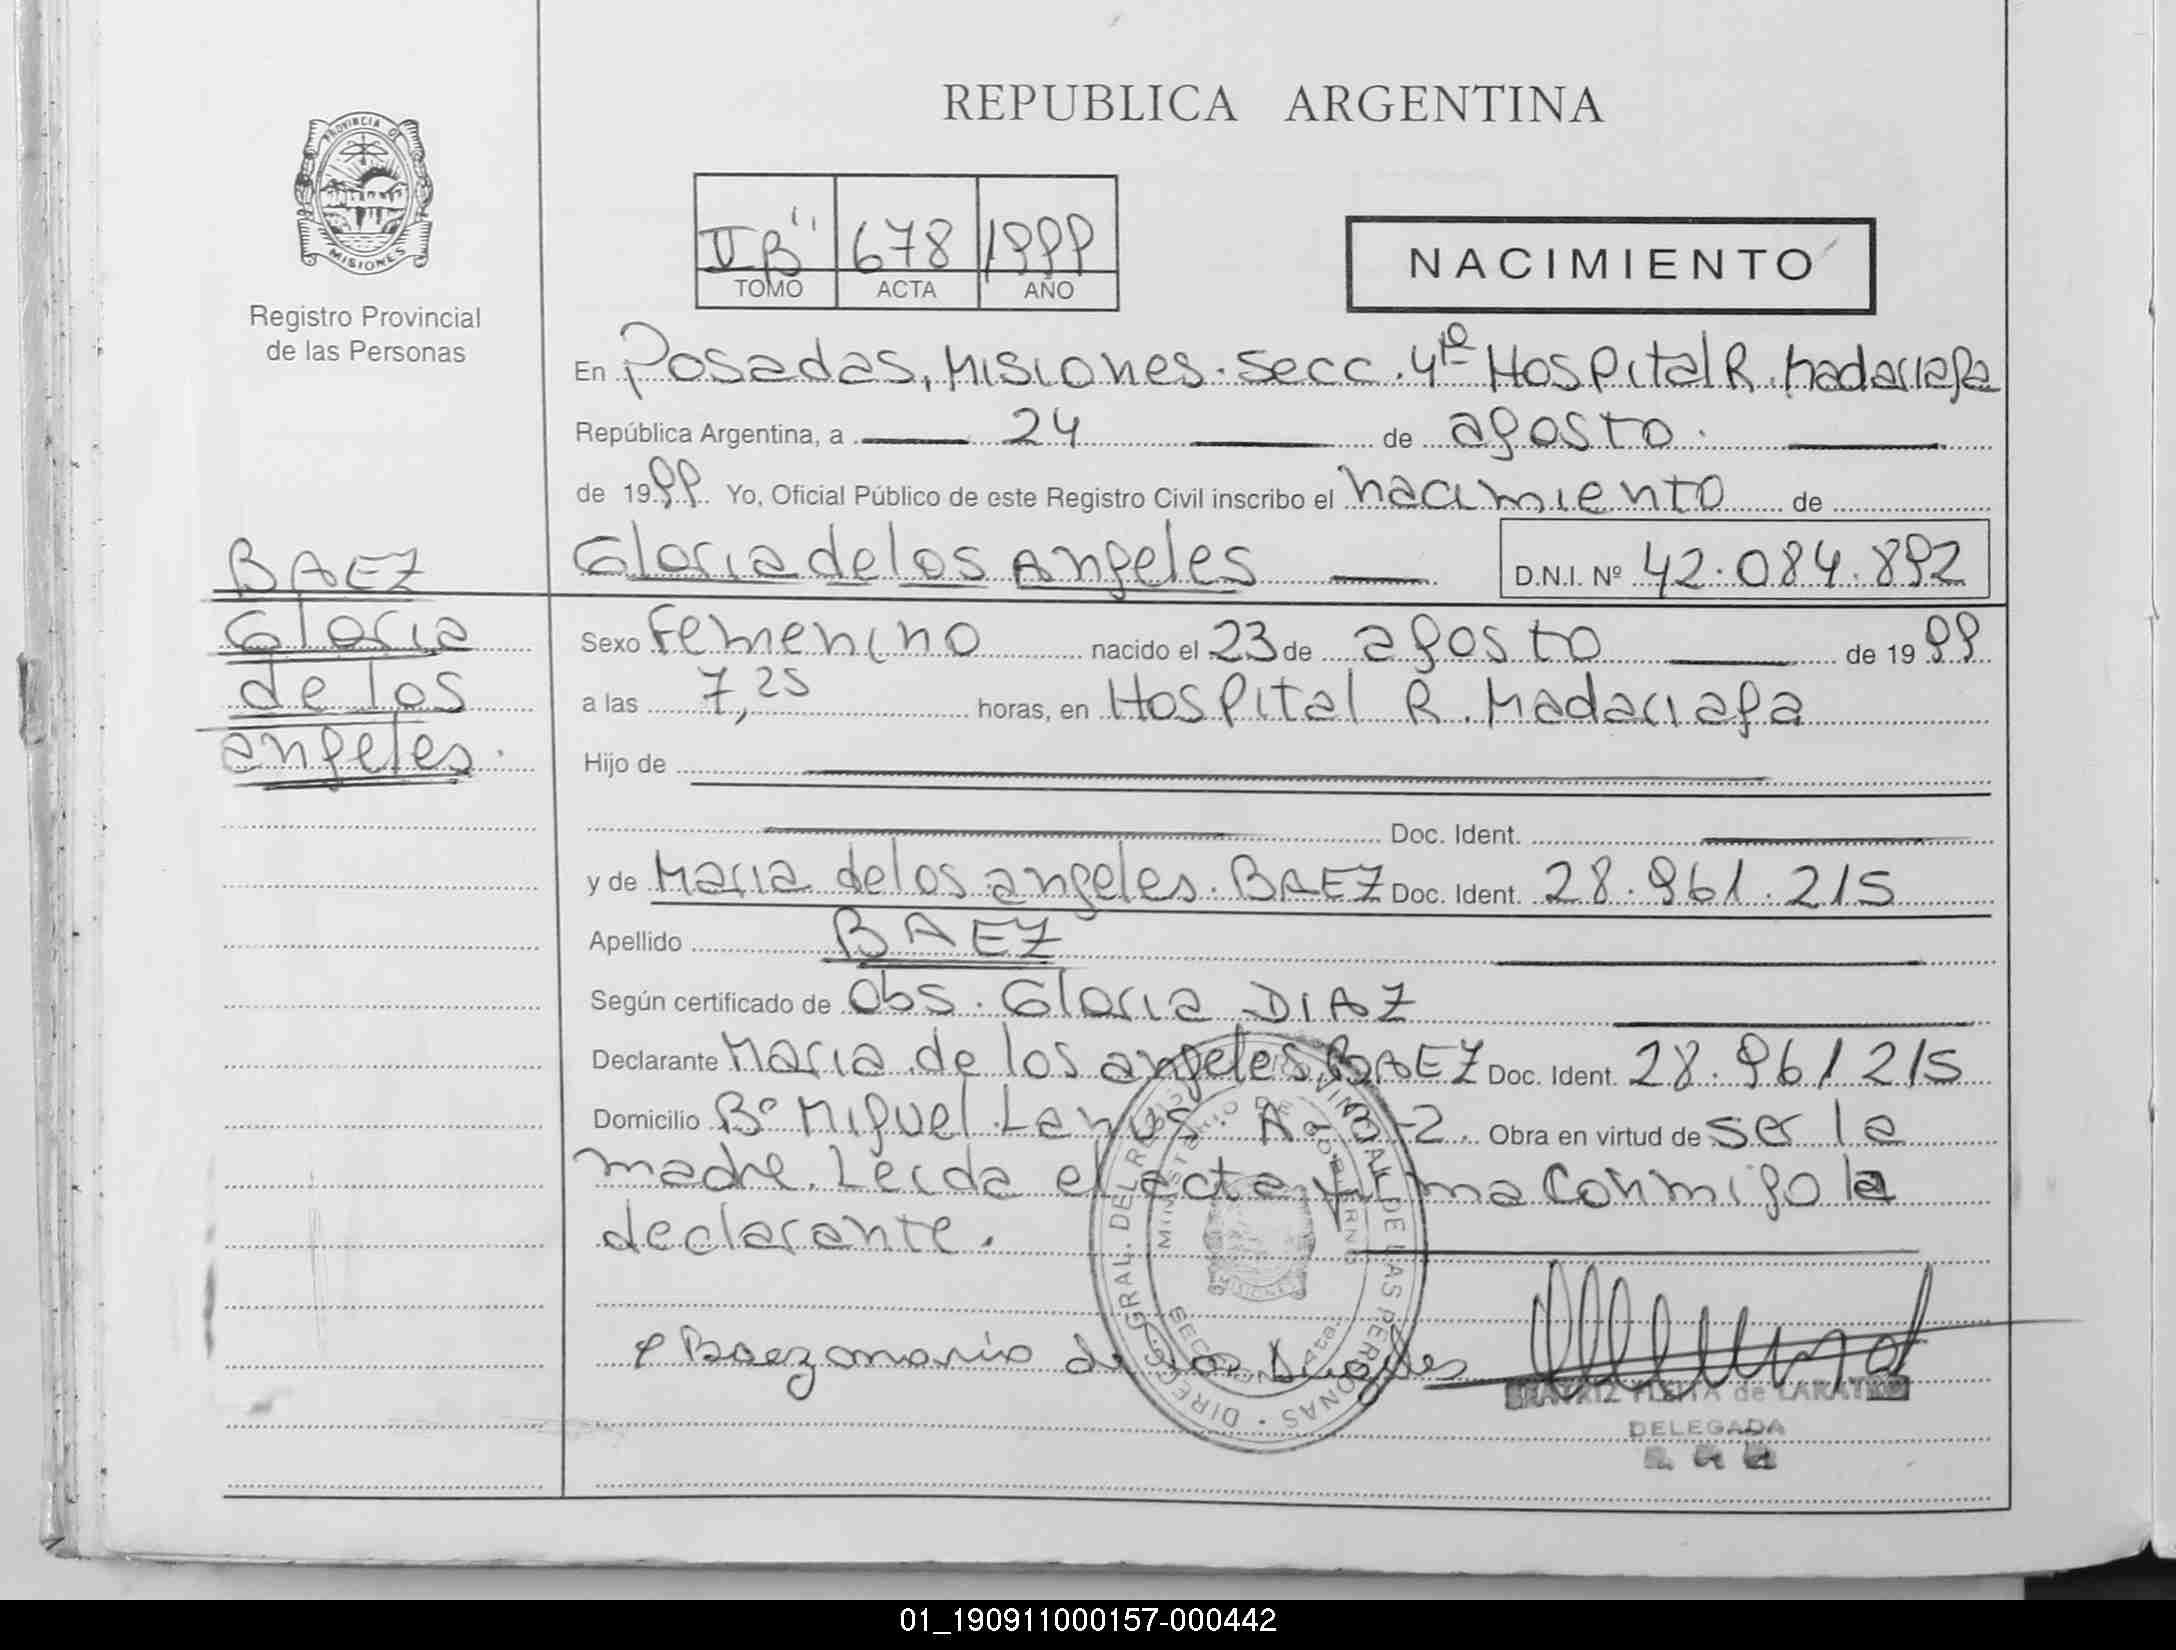 REPUBLICA ARGENTINA
PROVINCIA DE
MISIONES
Registro Provincial
de las Personas
II "B" 678 1999
TOMO ACTA AÑO
NACIMIENTO
En Posadas, Misiones. Secc. 4ta Hospital R. Madariaga
República Argentina, a 24 de agosto.
de 1999 Yo, Oficial Público de este Registro Civil inscribo el nacimiento de
Gloria de los Angeles D.N.I. Nº 42.084.892
BAEZ
Gloria
de los
angeles.
Sexo Femenino nacido el 23 de agosto de 1999
a las 7,25 horas, en Hospital R. Madariaga
Hijo de
Doc. Ident.
y de Maria de los angeles. BAEZ Doc. Ident. 28.961.215
Apellido BAEZ
Según certificado de Obs. Gloria DIAZ
Declarante Maria de los angeles BAEZ Doc. Ident. 28.961215
Domicilio Bº Miguel Lanus A-3-2. Obra en virtud de ser la
madre. Leida el acta firma conmigo la
declarante.
Baez maria de los Angeles
DIREC. GRAL. DEL REGISTRO PROVINCIAL DE LAS PERSONAS
MINISTERIO DE GOBIERNO
MISIONES
de LARATRO
DELEGADA
01_190911000157-000442